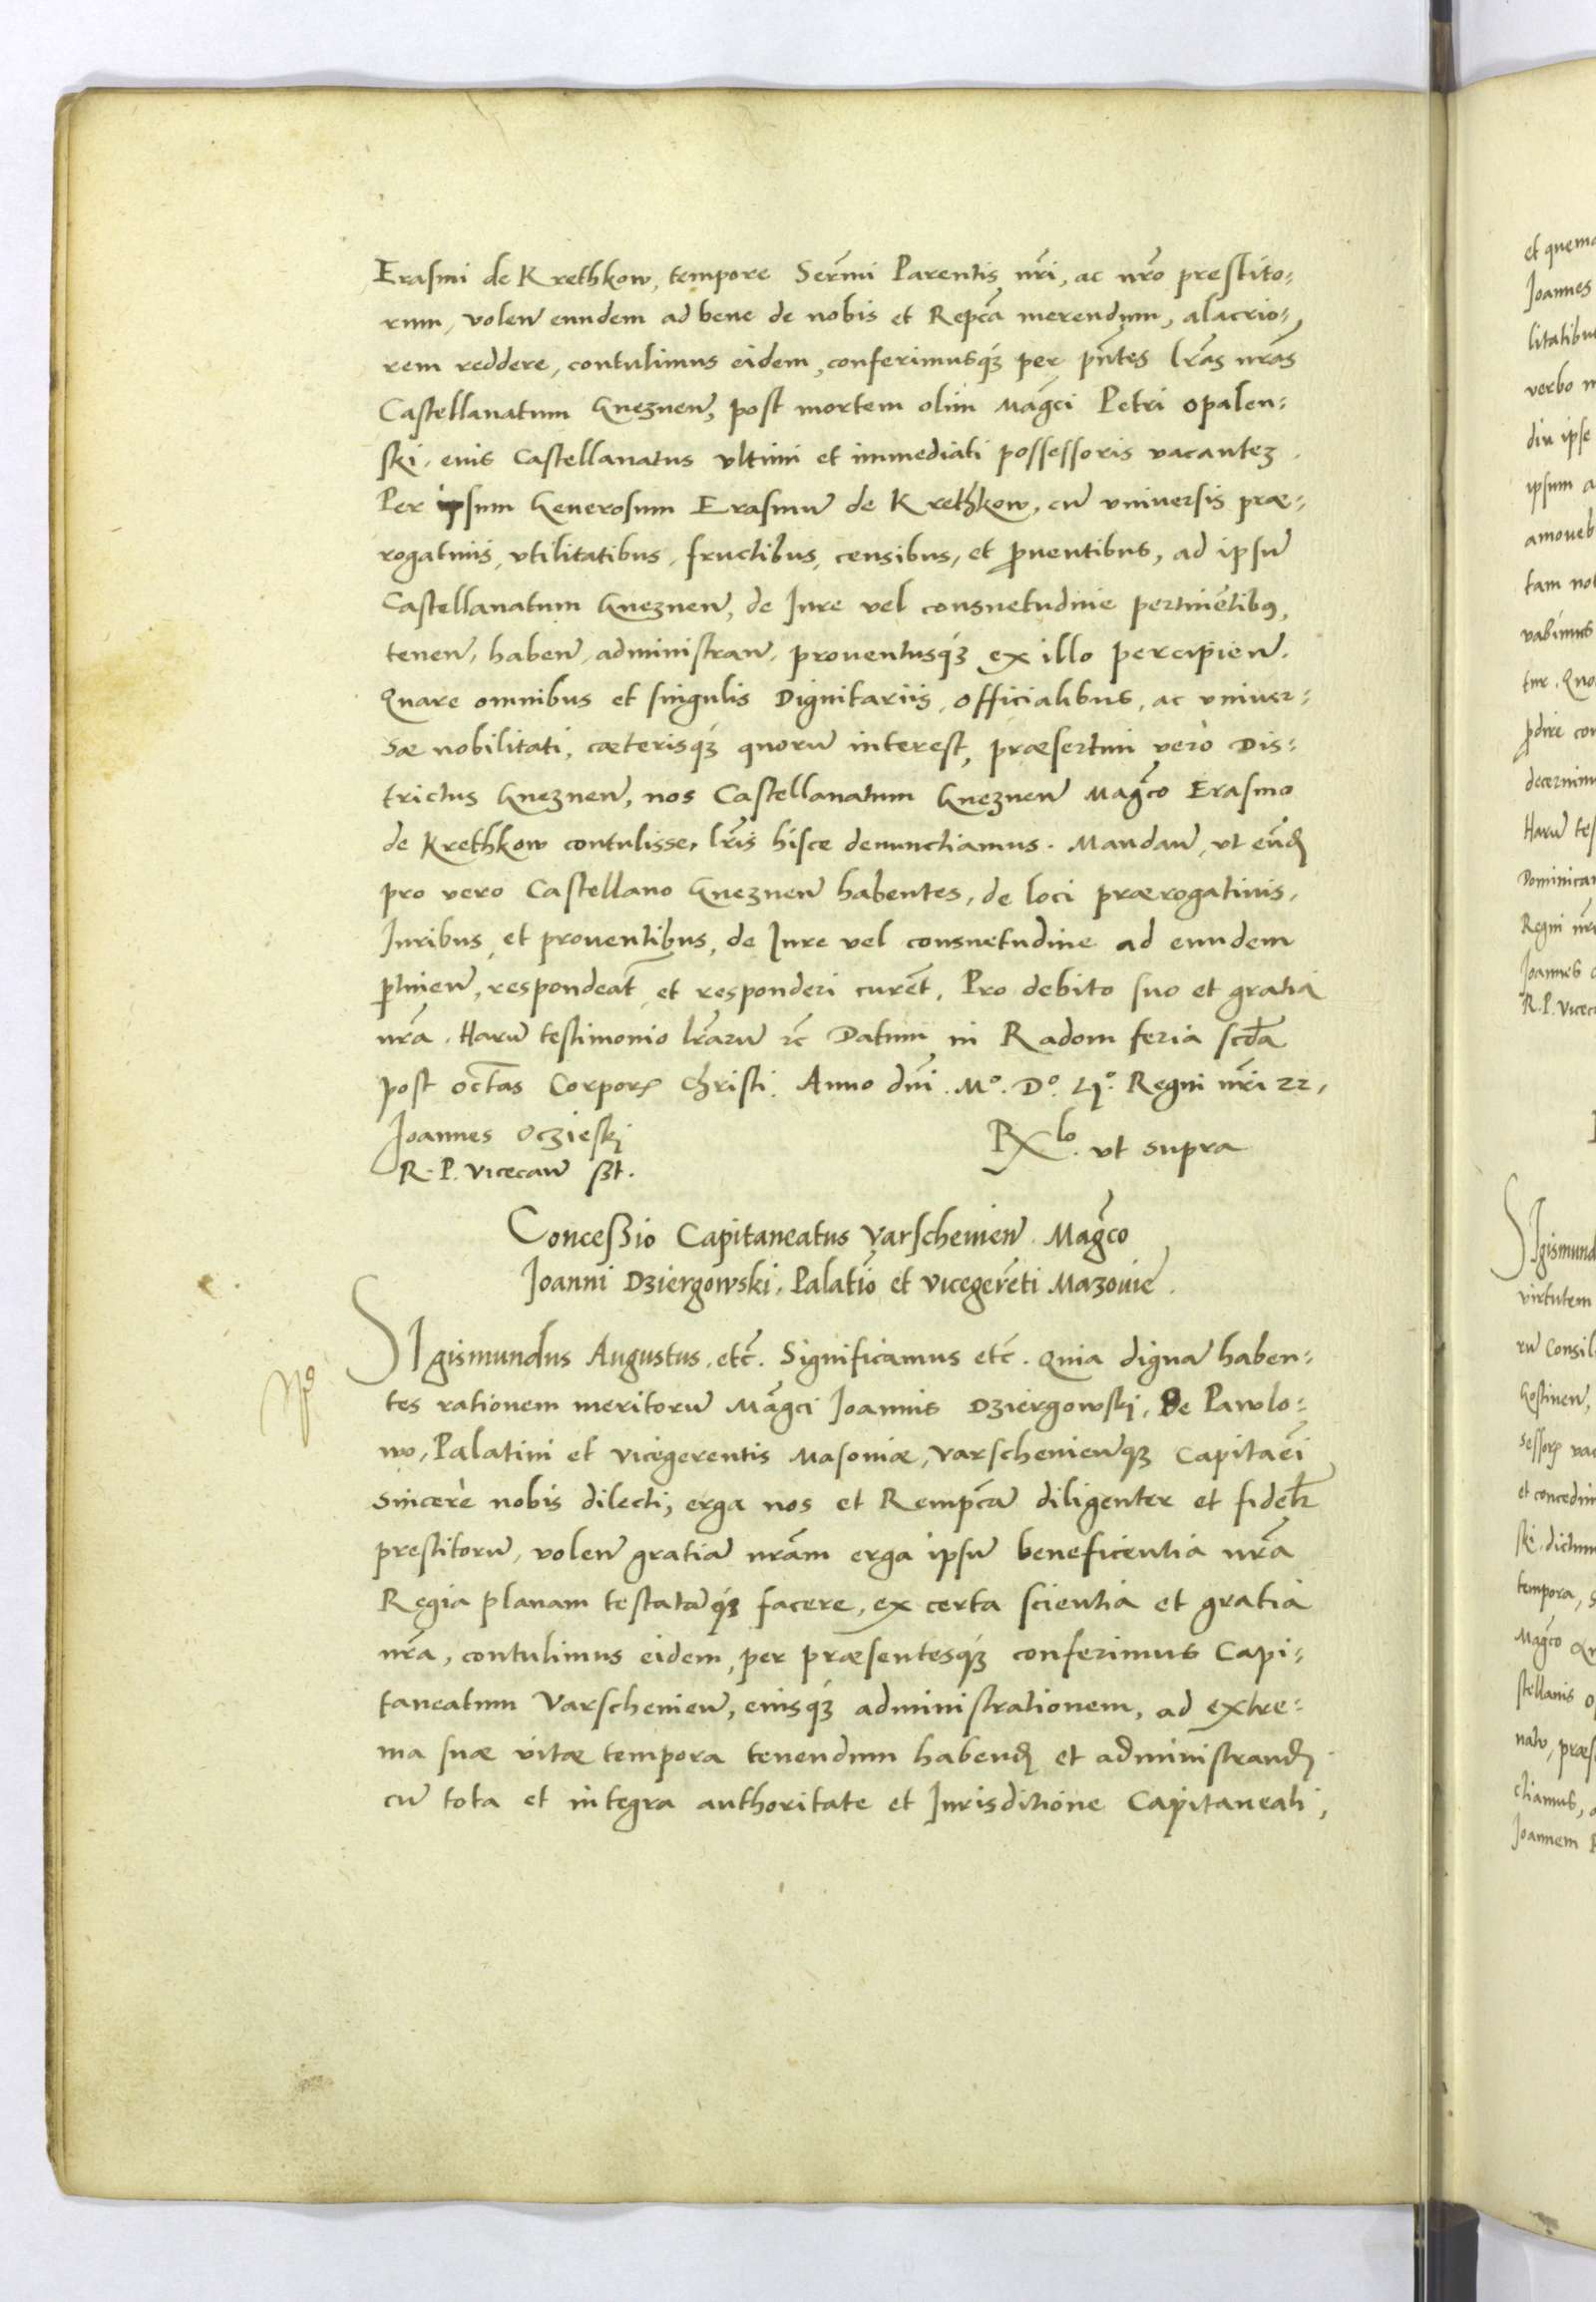 Erasmi de Krethkow, tempore Serm̃i Parentis nr̃i, ac nr̃o prestito=
rum, volen̄ eundem ad bene de nobis et Repc̃a merendum, alacrio=
rem reddere, contulimus eidem, conferimusq́ꝫ per pñtes lr̃as nr̃as
Castellanatum Gneznen̄, post mortem olim Mag̃ci Petri Opalen=
ski, eius Castellanatus ultimi et immediati possessoris vacanteꝫ.
Per ipsum Generosum Erasmū de Krethkow, cū vniuersis præ=
rogatiuis, vtilitatibus, fructibus, censibus, et ꝓuentibus, ad ipsū
Castellanatum Gneznen̄, de Iure vel consuetudine pertinētibꝰ,
tenen̄, haben̄, administran̄, prouentusq́ꝫ ex illo percipien̄.
Quare omnibus et singulis Dignitariis, officialibus, ac vniuer=
sæ nobilitati, cæterisq́ꝫ quorū interest, præsertim verò Dis=
trictus Gneznen̄, nos Castellanatum Gneznen̄ Mag̃co Erasmo
de Krethkow contulisse, lr̃is hisce denunctiamus. Mandan̄, vt eund̃
pro vero Castellano Gneznen̄ habentes, de loci prærogatiuis,
Iuribus, et prouentibus, de Iure vel consuetudine ad eundem
ꝑtinen̄, respondeāt et responderi curēt, Pro debito suo et gratia
nr̃a. Harū testimonio lr̃arū ꝛc̃ Datum in Radom feria scd̃a
post oct̃as Corporꝭ Christi. Anno dnĩ. Mº. Dº. Ljº. Regni nr̃i 22.
Joannes Oczieskj
R. P. Vicecan̄ sst.
Rx lo. vt supra
Conceßio Capitaneatus Varschenien̄ Mag̃co
Joanni Dziergowski, Palatĩo et vicegerẽti Mazouie.
SIgismundus Augustus, etc̃. Significamus etc̃. Quia dignā haben=
tes rationem meritorū Mag̃ci Joannis Dziergowskj, De Pawlo=
wo, Palatini et vicegerentis Masoniæ, Varschenien̄qꝫ Capitaẽi
sincerè nobis dilecti, erga nos et Rempc̃ā diligenter et fidelr̃
prestitorū, volen̄ gratiā nr̃am erga ipsū beneficentia nr̃a
Regia planam testatāq́ꝫ facere, ex certa scientia et gratia
nr̃a, contulimus eidem, per præsentesq́ꝫ conferimus Capi=
taneatum Varschenien̄, eiusq́ꝫ administrationem, ad extre=
ma suæ vitæ tempora tenendum habend̃ et administrand̃
cū tota et integra authoritate et Iurisditione Capitaneali,